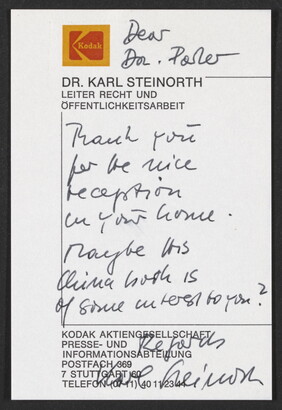 Kodak
Dear
Dr. Porter
DR. KARL STEINORTH
LEITER RECHT UND
ÖFFENTLICHKEITSARBEIT
Thank you
for the nice
reception
in your home.
Maybe this
China book is
of some interest to you?
Regards
KODAK AKTIENGESELLSCHAFT
PRESSE- UND
INFORMATIONSABTEILUNG
POSTFACH 369
7 STUTTGART 60
TELEFON (07 11) 40 11
Karl Steinorth